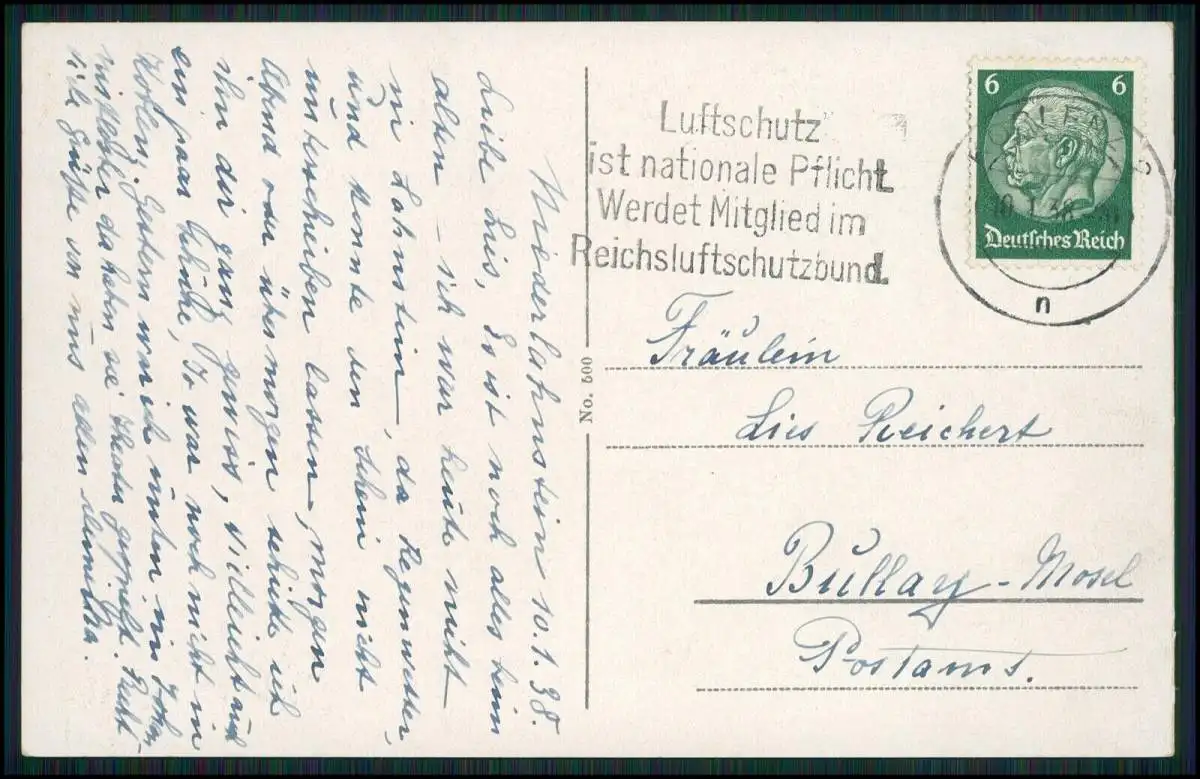 Niederlahnstein 10.1.38.
Liebe Lies, Es ist noch alles beim
alten – ich war heute nicht
in Lahnstein, da Regenwetter,
und konnte den Schein nicht
unterschreiben lassen, morgen
Abend oder übermorgen schicke ich
ihn dir ganz gewiss, villeicht auch
ein paar Schuhe, Ir war noch nicht in
Koblenz. Gestern war ich unten in
da haben sie Theater gespielt. Herz-
liche Grüße von uns allen
Luftschutz
ist nationale Pflicht
Werdet Mitglied im
Reichsluftschutzbund.
6 6
Deutsches Reich
KOBLENZ 2
10.1.38
n
No. 500
Fräulein
Lies Reichert
Bullay-Mosel
Postamt.